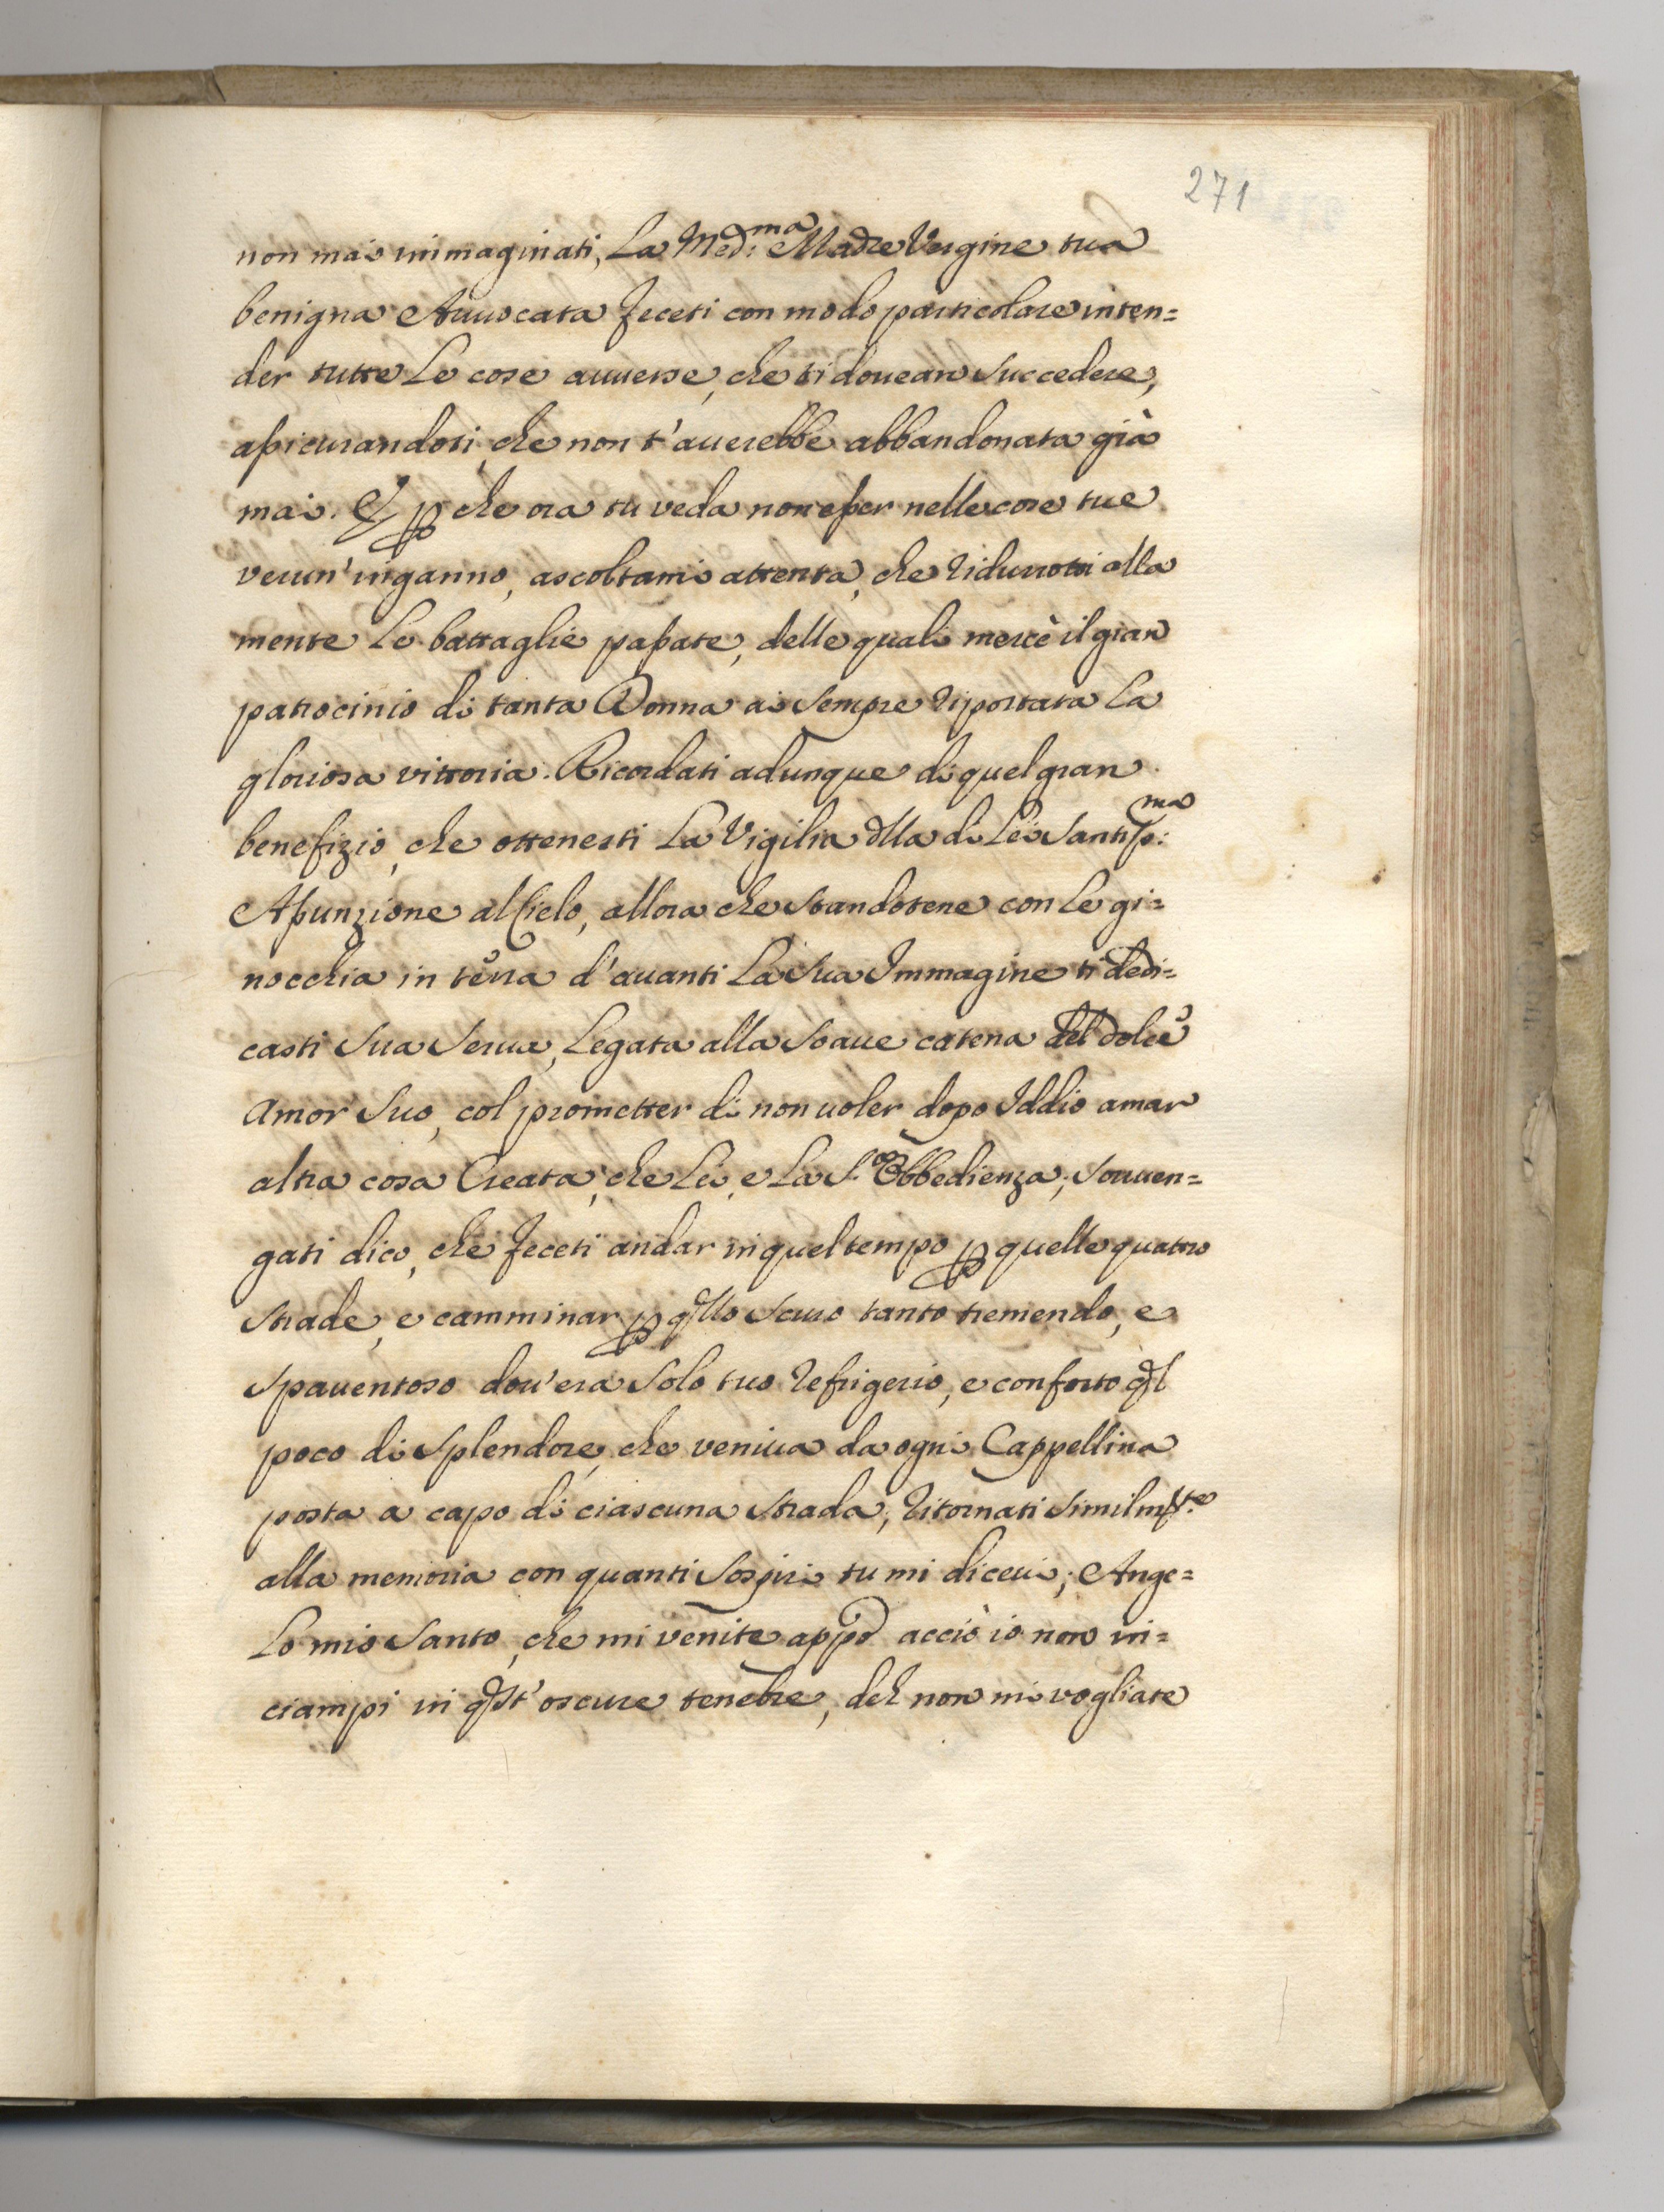 271
non mai immaginati, La Med:ma Madre Vergine tua
benigna Avvocata feceti con modo particolare inten=
der tutte Le cose avverse, che ti dovean succedere,
assicurandoti, che non t'averebbe abbandonata già
mai. E p che ora tu veda non esser nelle cose tue
verun'inganno, ascoltami attenta, che ridurroti alla
mente Le battaglie passate, delle quali mercè il gran
patrocinio di tanta Donna ai sempre riportata La
gloriosa vittoria. Ricordati adunque di quel gran
benefizio, che ottenesti La Vigilia dlla di Lei Santiss:ma
Assunzione al Cielo, allora che standotene con Le gi=
nocchia in terra d'avanti La sua Immagine ti dedi=
casti sua serva, Legata alla soave catena del dolce
Amor suo, col prometter di non voler dopo Iddio amar
altra cosa Creata, che Lei, e La S.a Obbedienza; sovven=
gati dico, che feceti andar in quel tempo p quelle quattro
strade, e camminar p qllo scuro tanto tremendo, e
spaventoso dov'era solo tuo refrigerio, e conforto ql
poco di splendore, che veniva da ogni Cappellina
posta a capo di ciascuna strada; ritornati similmte
alla memoria con quanti sospiri tu mi dicevi; Ange=
Lo mio Santo, che mi venite appo acciò io non in=
ciampi in qst'oscure tenebre, deh non mi vogliate